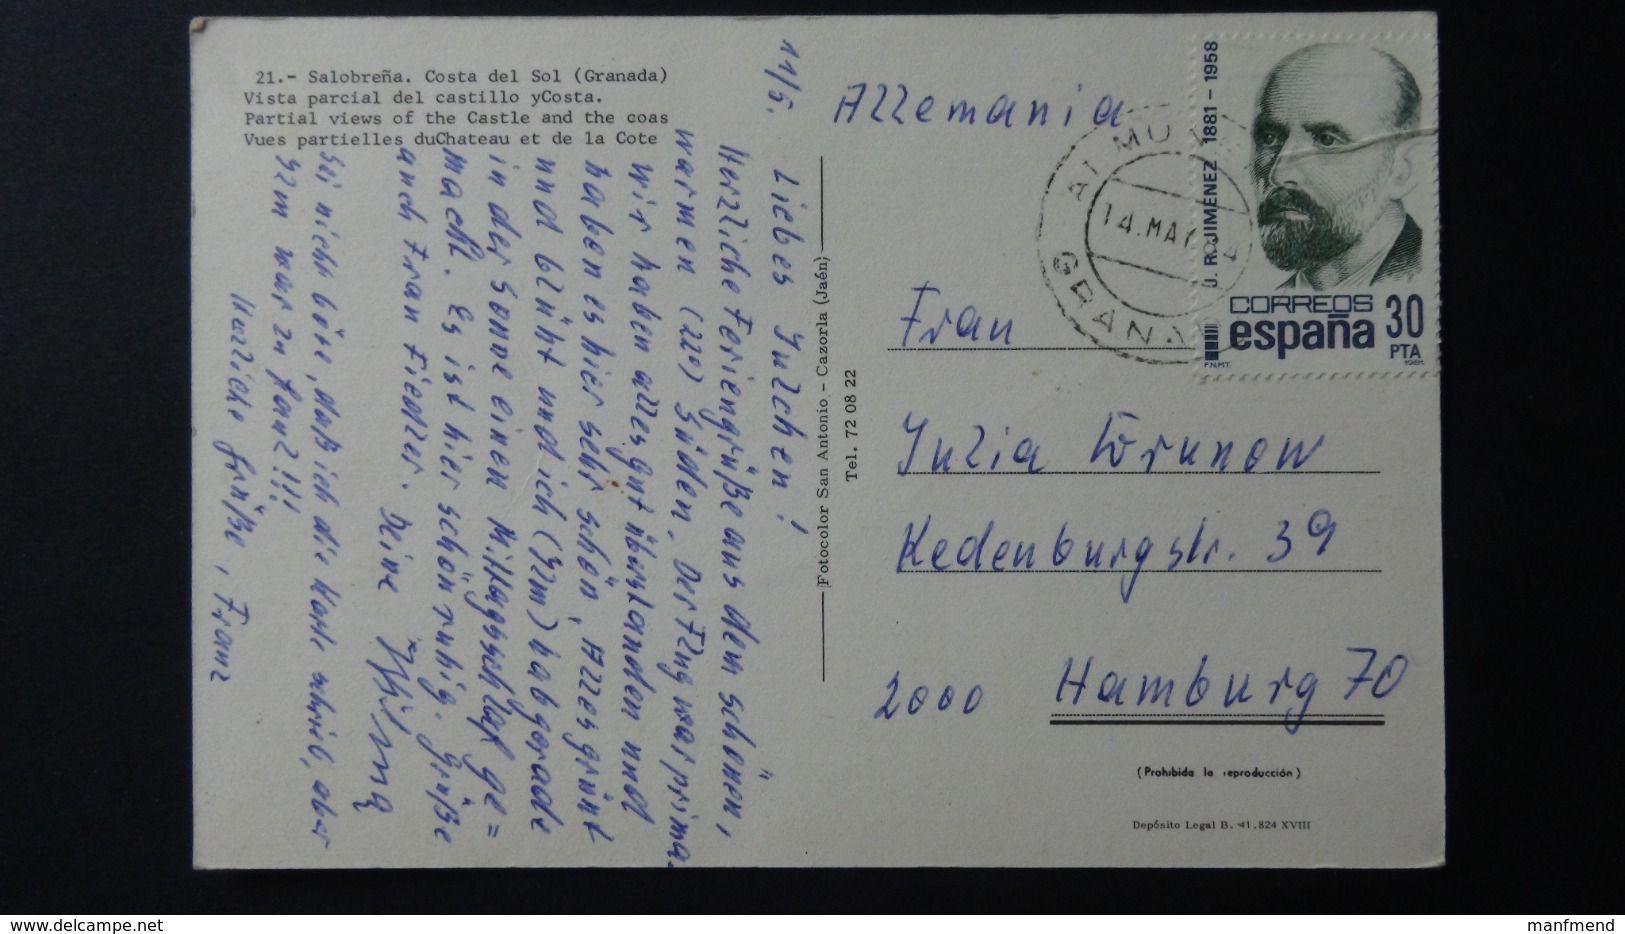 21.- Salobreña. Costa del Sol (Granada)
Vista parcial del castillo yCosta.
Partial views of the Castle and the coas
Vues partielles duChateau et de la Cote
11/5.
Liebes Julchen!
Herzliche Feriengrüße aus dem schönen,
warmen (22°) Süden. Der Flug war prima.
wir haben alles gut überstanden und
haben es hier sehr schön. Alles grünt
und blüht und ich (32m) hab gerade
in der Sonne einen Mittagsschlaf ge=
macht. Es ist hier schön ruhig. Grüße
auch Frau Fiedler. Deine
Sei nicht böse, daß ich die Karte schrieb, aber
war zu faul!!!
Herzliche Grüße, Franz
Fotocolor San Antonio. - Cazorla (Jaén)
Tel. 72 08 22
Allemania
Frau
Julia Grunow
Kedenburgstr. 39
2000 Hamburg 70
(Prohibida la reproducción)
Depósito Legal B. 41.824 XVIII
14. MA
GRANA
J. R. JIMENEZ 1881-1958
CORREOS
españa 30
PTA
F.N.M.T. 1981
www.delcampe.net
manfmend